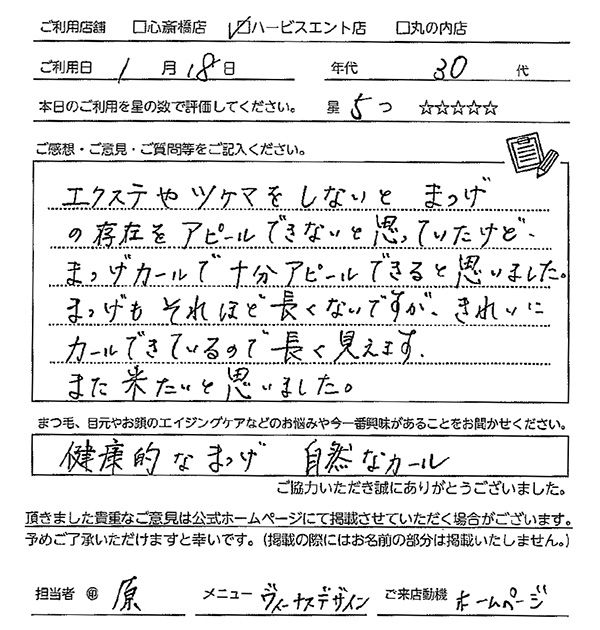 ご利用店舗 □心斎橋店 ☑ハービスエント店 □丸の内店
ご利用日 1月18日 年代 30代
本日のご利用を星の数で評価してください。 星 5つ ☆☆☆☆☆
ご感想・ご意見・ご質問等をご記入ください。
エクステやツケマをしないと まつげ
の存在をアピールできないと思っていたけど、
まつげカールで十分アピールできると思いました。
まつげもそれほど長くないですが、きれいに
カールできているので長く見えます。
また来たいと思いました。
まつ毛、目元やお顔のエイジングケアなどのお悩みや今一番興味があることをお聞かせください。
健康的なまつげ 自然なカール
ご協力いただき誠にありがとうございました。
頂きました貴重なご意見は公式ホームページにて掲載させていただく場合がございます。
予めご了承いただけますと幸いです。（掲載の際にはお名前の部分は掲載いたしません。）
担当者 ㊞ 原 メニュー ヴィーナスデザイン ご来店動機 ホームページ